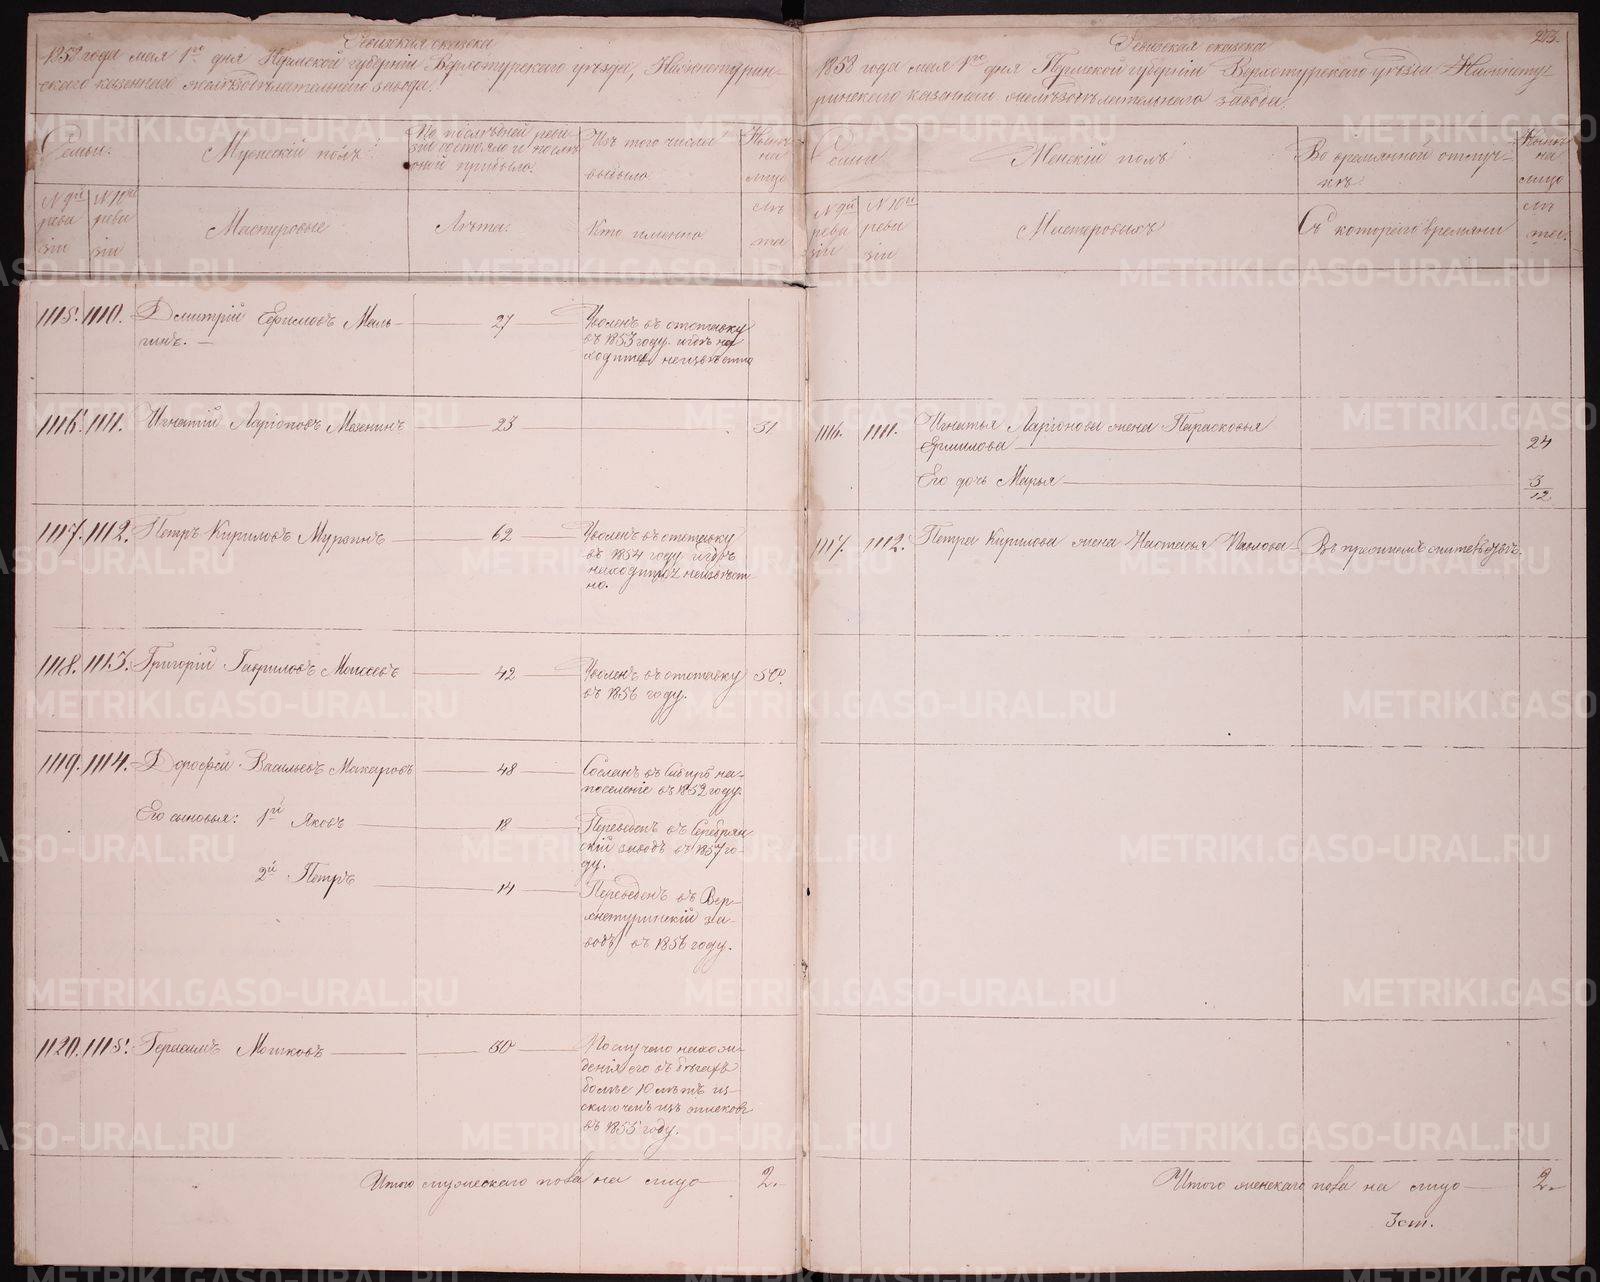 Ревизская сказка
1858 года мая 1го дня Пермской губернии Верхотурского уѣзда, Нижнетурин-
скаго казеннаго желѣзодѣлательнаго завода.
Семьи.
Мужескій полъ
По послѣдней реви-
зіи состояло и послѣ
оной прибыло.
Изъ того числа
выбыло
Нынѣ
на
лицо
N 9й
реви
зіи
N 10й
реви
зіи
Мастеровые
Лѣта.
Кто именно
Лѣ
та
1115. 1110. Дмитрій Ефимовъ Маль-
гинъ. 27
Уволенъ въ отставку
въ 1853 году. и гдѣ на
ходится неизвѣстно
1116. 1111. Игнатій Ларіоновъ Мезенинъ 23 31
1117. 1112. Петръ Кириловъ Мурзинъ 62
Уволенъ въ отставку
въ 1854 году и гдѣ
находится неизвѣст
но.
1118. 1113. Григорій Гавриловъ Моисеевъ 42
Уволенъ въ отставку
въ 1856 году. 50.
1119. 1114. Дорофей Васильевъ Макаровъ 48
Сосланъ въ Сибирь на
поселеніе въ 1852 году.
Его сыновья: 1й Яковъ 18
Переведенъ въ Серебрян
скій заводъ въ 1857 го-
ду.
2й Петръ 14
Переведенъ въ Вер-
хнетуринскій за-
водъ въ 1856 году.
1120. 1115. Герасимъ Мошковъ 30
По случаю нахож-
денія его въ бѣгахъ
болѣе 10 лѣтъ ис-
ключенъ изъ списковъ
въ 1855 году.
Итого мужескаго пола на лицо 2.
273.
Ревизская сказка
1858 года мая 1го дня Пермской губерніи Верхотурскаго уѣзда Нижнету-
ринскаго казеннаго желѣзодѣлательнаго завода.
Семьи
Женскій полъ
Во временной отлуч-
кѣ
Нынѣ
на
лицо
N 9й
реви
зіи
N 10й
реви
зіи
Мастеровыхъ
Съ котораго времяни
Лѣ
та.
1116. 1111. Игнатья Ларіонова жена Парасковья
Ермилова 24
Его дочь Марья 3/12
1117. 1112. Петра Кирилова жена Настасья Павлова
Итого женскаго пола на лицо 2
3 ст.
METRIKI.GASO-URAL.RU